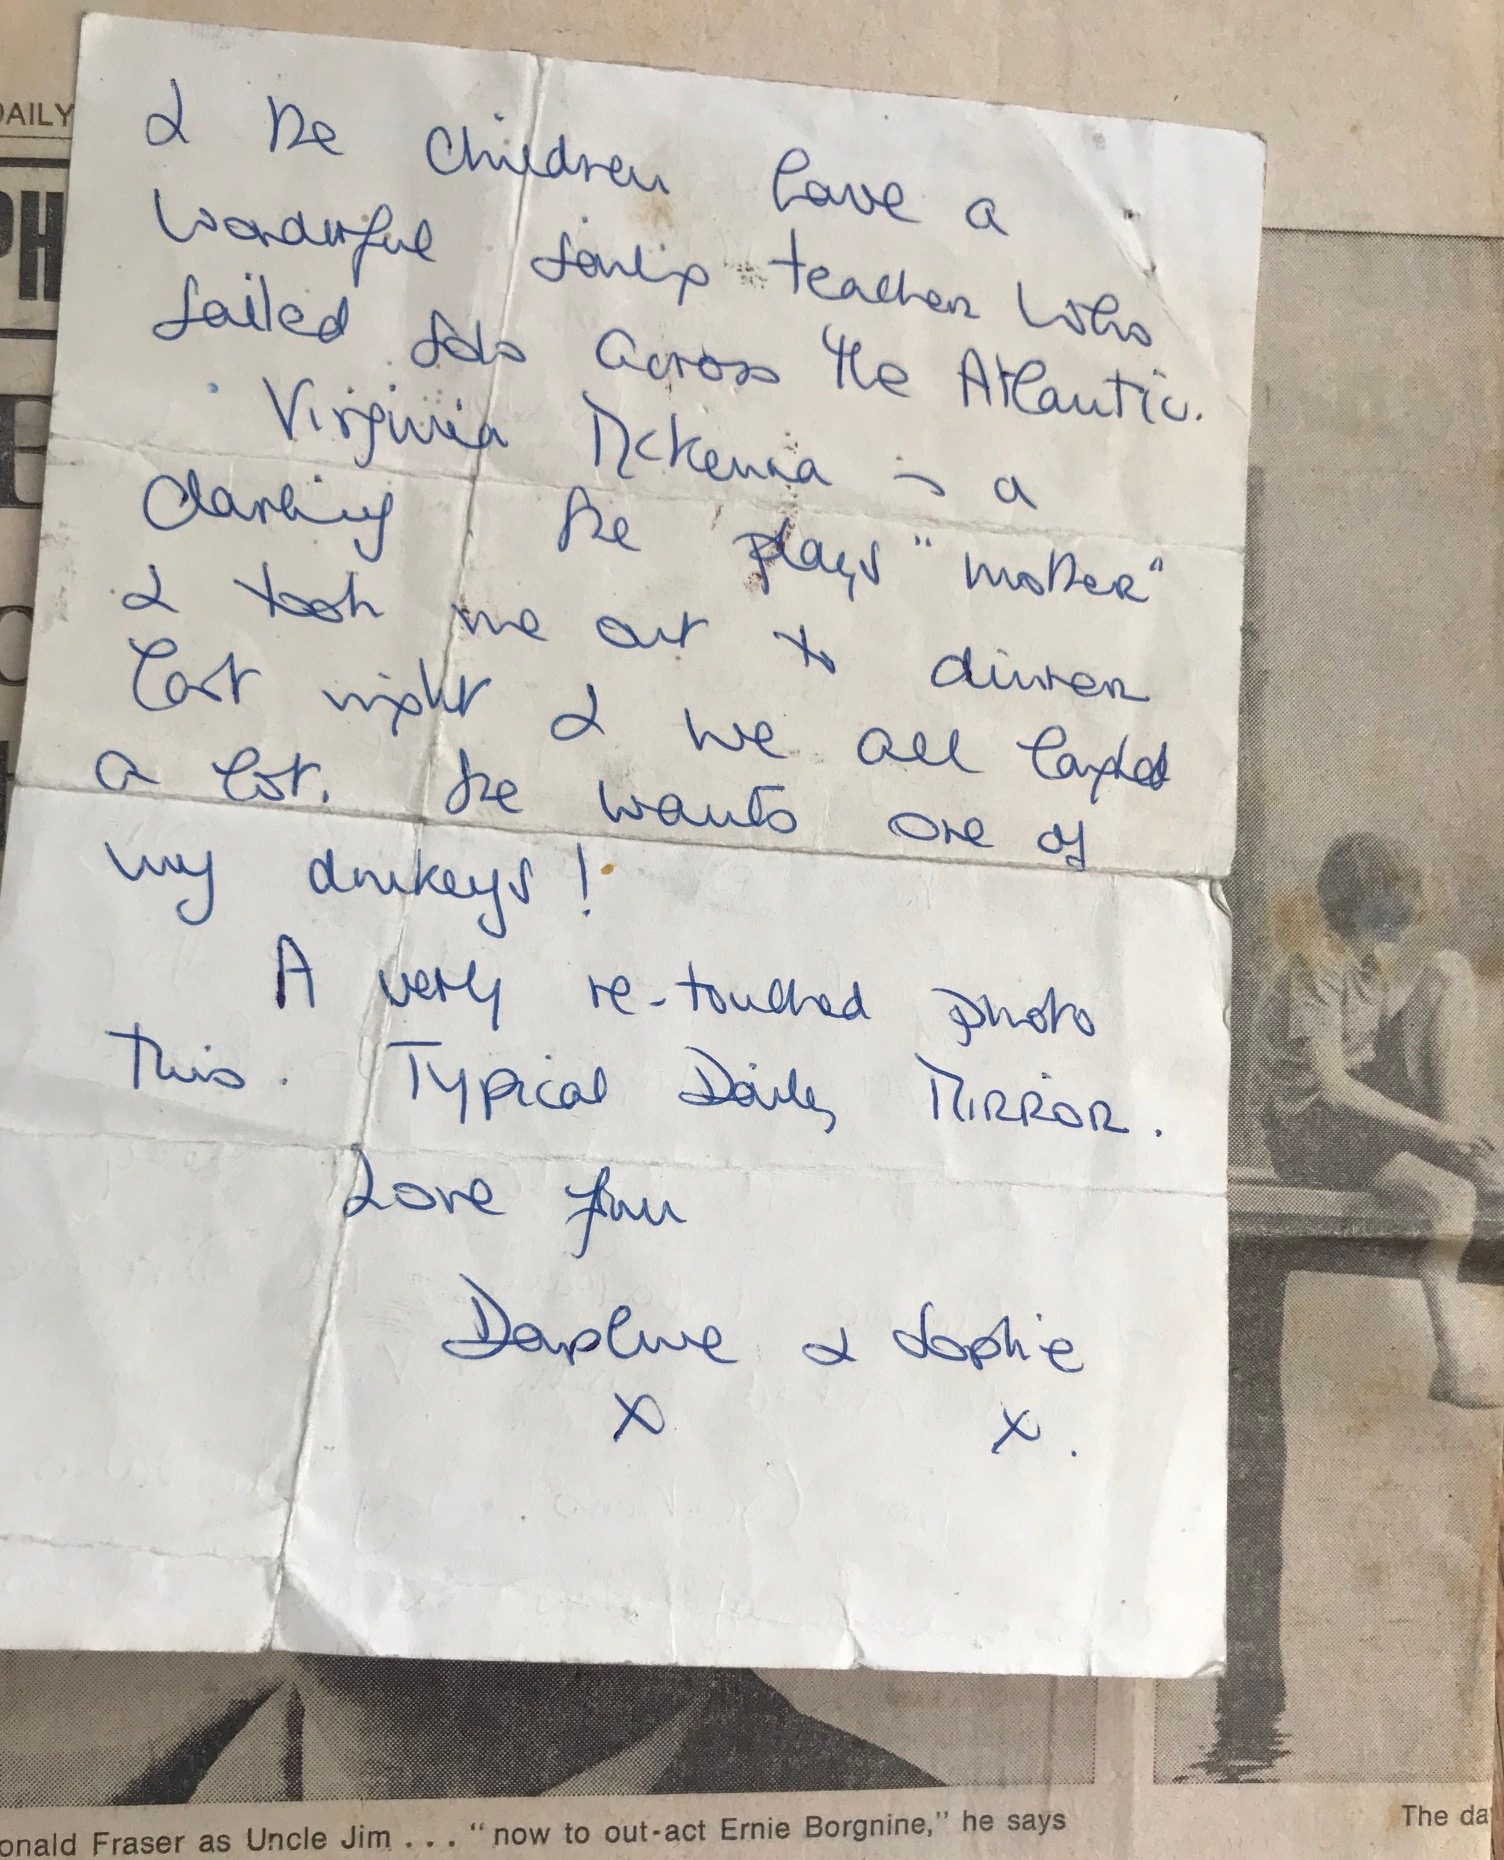 DAILY
PH
& the children have a
wonderful sailing teacher who
sailed solo across the Atlantic.
Virginia McKenna is a
darling she plays "mother"
& took me out to dinner
last night & we all laughed
a lot. She wants one of
my donkeys!
A very re-touched photo
this. Typical Daily Mirror.
Love from
Daphne & Sophie
x x.
onald Fraser as Uncle Jim . . . "now to out-act Ernie Borgnine," he says
The da